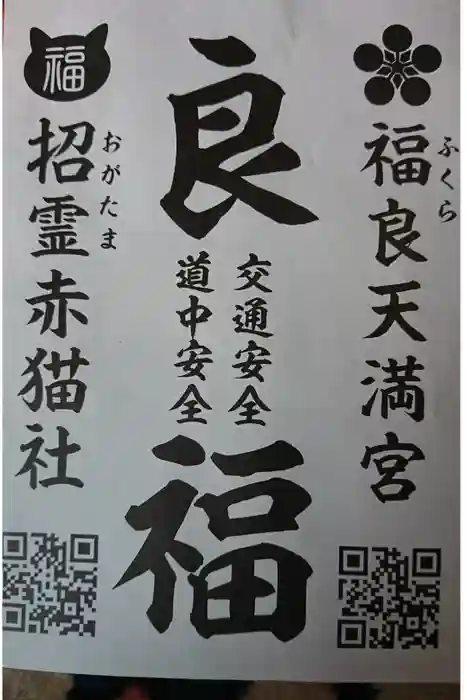 福良天満宮
ふくら
良
交通安全
道中安全
福
福
招霊赤猫社
おがたま